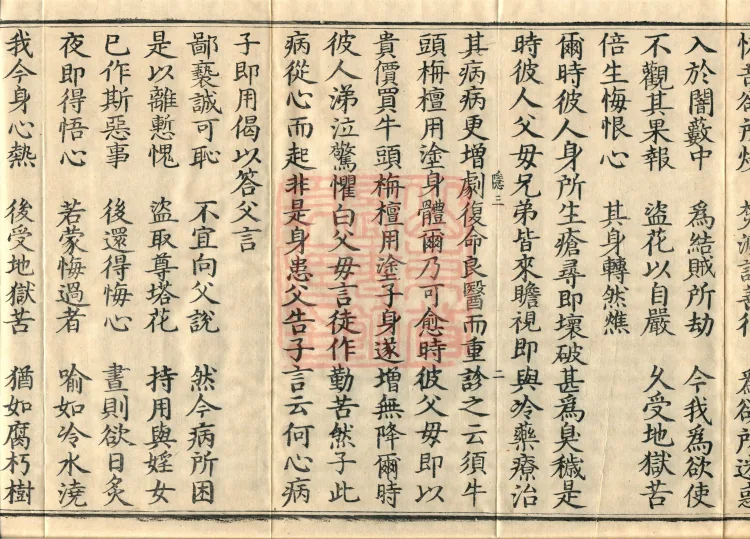 入於闇藪中　爲結賊所劫　今我爲欲使
不觀其果報　盜花以自嚴　久受地獄苦
倍生悔恨心　其身轉然燋
爾時彼人身所生瘡尋即壞破甚爲臭穢是
時彼人父母兄弟皆來瞻視即與冷藥療治
隱三　二
其病病更增劇復命良醫而重診之云須牛
頭栴檀用塗身體爾乃可愈時彼父母即以
貴價買牛頭栴檀用塗子身遂增無降爾時
彼人涕泣驚懼白父母言徒作勤苦然子此
病從心而起非是身患父告子言云何心病
子即用偈以答父言
鄙褻誠可恥　不宜向父說　然今病所困
是以離慙愧　盜取尊塔花　持用與婬女
已作斯惡事　後還得悔心　晝則欲日炙
夜即得悟心　若蒙悔過者　喻如冷水澆
我今身心熱　後受地獄苦　猶如腐朽樹